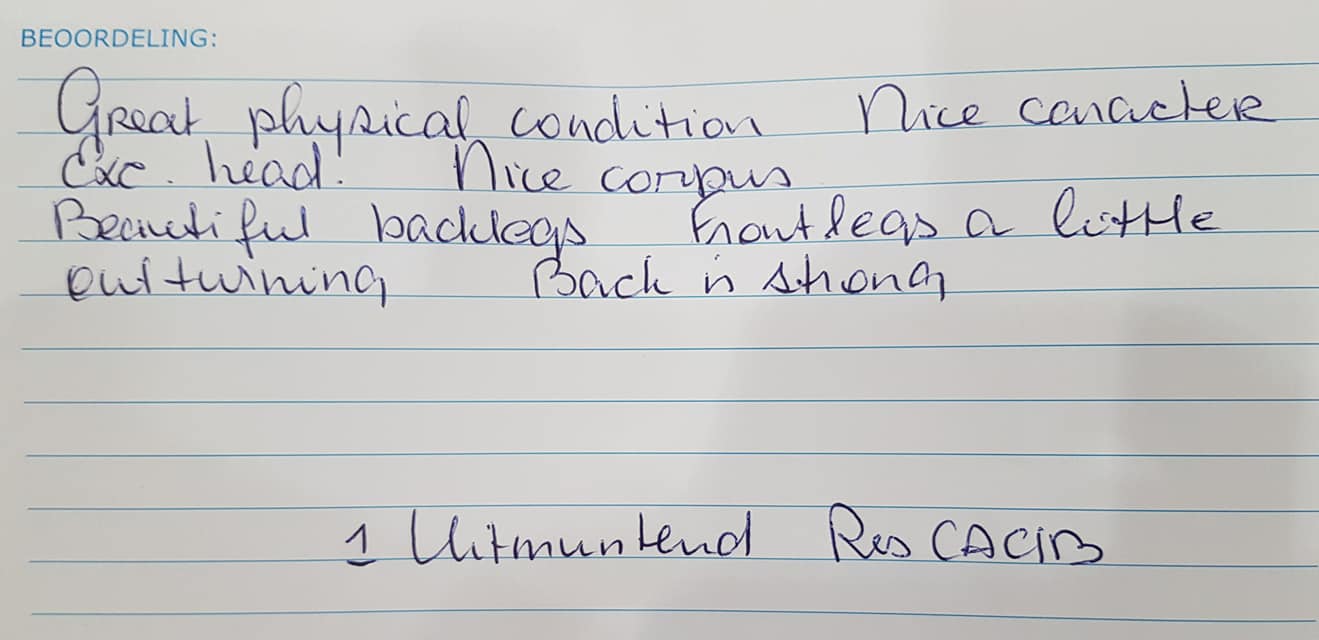 BEOORDELING:
Great physical condition Nice caracter
Exc. head. Nice corpus
Beautiful backlegs Frontlegs a little
outturning Back is strong
1 Uitmuntend Res CACIB